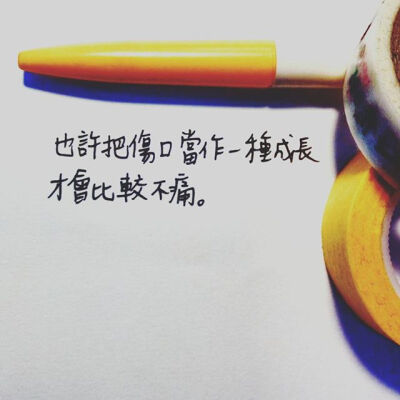 也許把傷口當作一種成長
才會比較不痛。